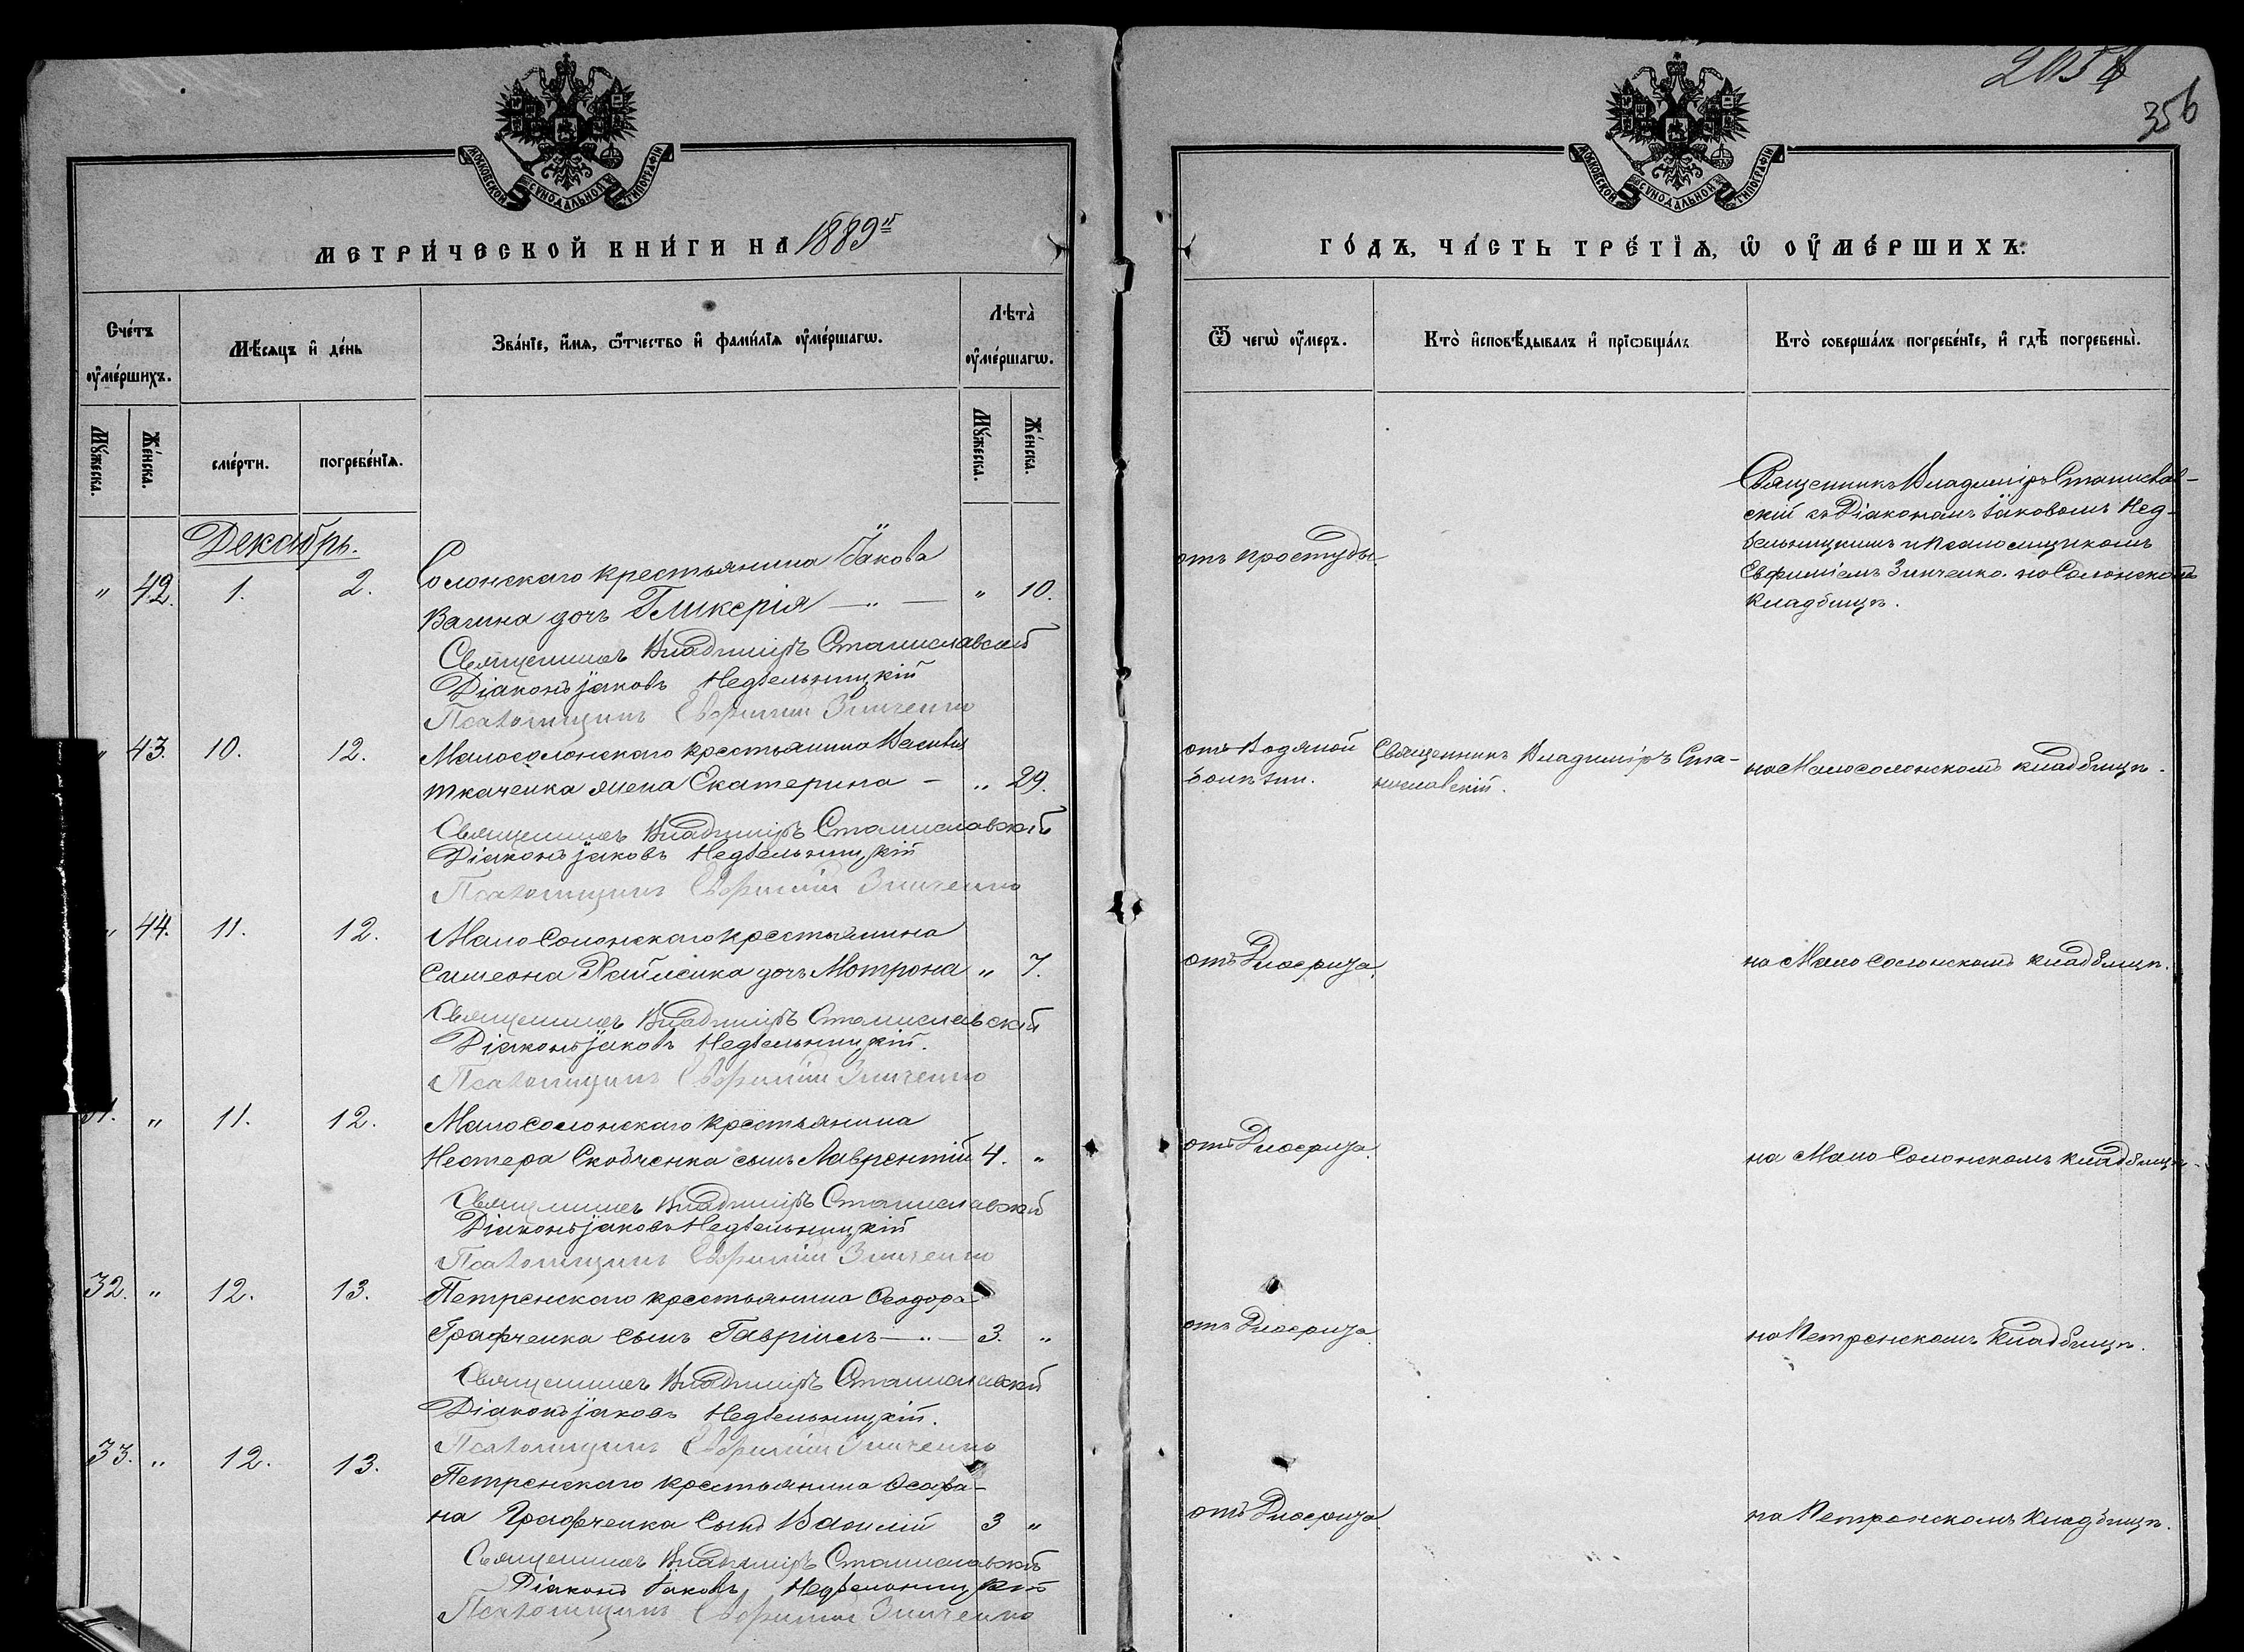 2054
356
МОСКОВСКОЙ СѴНОДАЛЬНОЙ ТИПОГРАФІИ
МОСКОВСКОЙ СѴНОДАЛЬНОЙ ТИПОГРАФІИ
МЕТРИ́ЧЕСКОЙ КНИ́ГИ НА 1889й
ГО́ДЪ, ЧА́СТЬ ТРЕ́ТІѦ, Ѡ҆ ОУ҆МЕ́РШИХЪ:
Сче́тъ оу҆ме́ршихъ.
Мѣ́сяцъ и҆ де́нь
Зва́нїе, и҆́мѧ, ѻ҆́тчество и҆ фами́лїѧ оу҆ме́ршагѡ.
Лѣ́та оу҆ме́ршагѡ.
Ѿ чегѡ̀ оу҆́меръ.
Кто̀ и҆сповѣ́дывалъ и҆ прїѡбща́лъ
Кто̀ соверша́лъ погребе́нїе, и҆ гдѣ̀ погребены̀.
Му́жеска.
Же́нска.
сме́рти.
погребе́нїѧ.
Му́жеска.
Же́нска.
Декабрь.
„ 42. 1. 2. Солонскаго крестьянина Іакова
Вагина дочь Гликерія — „ — „ 10.
отъ простуды.
Священникъ Владиміръ Станислав-
скій съ Діакономъ Іаковомъ Нед-
ѣльницкимъ и псаломщикомъ
Евфиміемъ Зинченко. на Солонскомъ
кладбищѣ.
Священникъ Владиміръ Станиславскій
Діаконъ Іаковъ Недѣльницкій
Псаломщикъ Евфимій Зинченко
„ 43. 10. 12. Малосолонскаго крестьянина Василія
Ткаченка жена Екатерина — „ 29.
отъ водяной
болѣзни.
Священникъ Владиміръ Ста-
ниславскій.
на Малосолонскомъ кладбищѣ.
Священникъ Владиміръ Станиславскій
Діаконъ Іаковъ Недѣльницкій
Псаломщикъ Евфимій Зинченко
„ 44. 11. 12. Мало Солонскаго крестьянина
Симеона дочь Мотрона „ 7.
отъ Диферита.
на Мало Солонскомъ кладбищѣ.
Священникъ Владиміръ Станиславскій
Діаконъ Іаковъ Недѣльницкій.
Псаломщикъ Евфимій Зинченко
31. „ 11. 12. Мало Солонскаго крестьянина
Нестера Скобченка сынъ Лаврентій 4. „
отъ Диферита.
на Мало Солонскомъ кладбищѣ.
Священникъ Владиміръ Станиславскій
Діаконъ Іаковъ Недѣльницкій
Псаломщикъ Евфимій Зинченко
32. „ 12. 13. Петренскаго крестьянина Ѳеодора
Графченка сынъ Гавріилъ — „ — 3. „
отъ Диферита.
на Петренскомъ кладбищѣ.
Священникъ Владиміръ Станиславскій
Діаконъ Іаковъ Недѣльницкій.
Псаломщикъ Евфимій Зинченко
33. „ 12. 13. Петренскаго крестьянина Ѳеофа-
на Графченка сынъ Василій 3 „
отъ Диферита.
на Петренскомъ кладбищѣ.
Священникъ Владиміръ Станиславскій
Діаконъ Іаковъ Недѣльницкій
Псаломщикъ Евфимій Зинченко